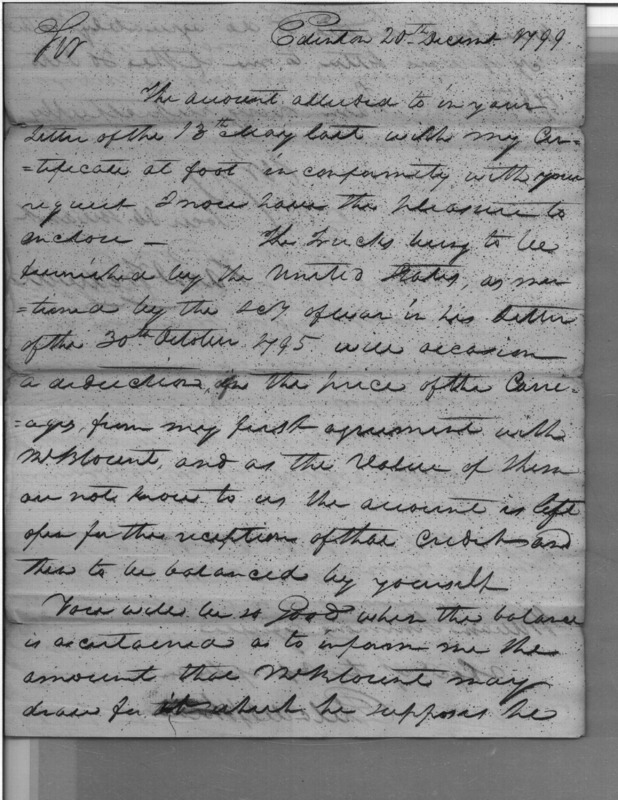 Sir Edenton 20th Decemr. 1799
The account alluded to in your
Letter of the 13th May last with my Cer=
=tificate at foot in conformity with your
request I now have the pleasure to
inclose — The Trucks being to be
furnished by the United States, as men
=tioned by the Secy of war in his Letter
of the 30th October 1795 will occasion
a deduction, in the price of the Carri=
=ages, from my first agreement with
Mr Blount, and as the Value of them
are not know to us the account is left
open for the reception of that Credit and
then to be balanced by yourself
You will be so Good when the balance
is ascertained as to inform me the
amount that Mr Blount may
draw for which he supposes he